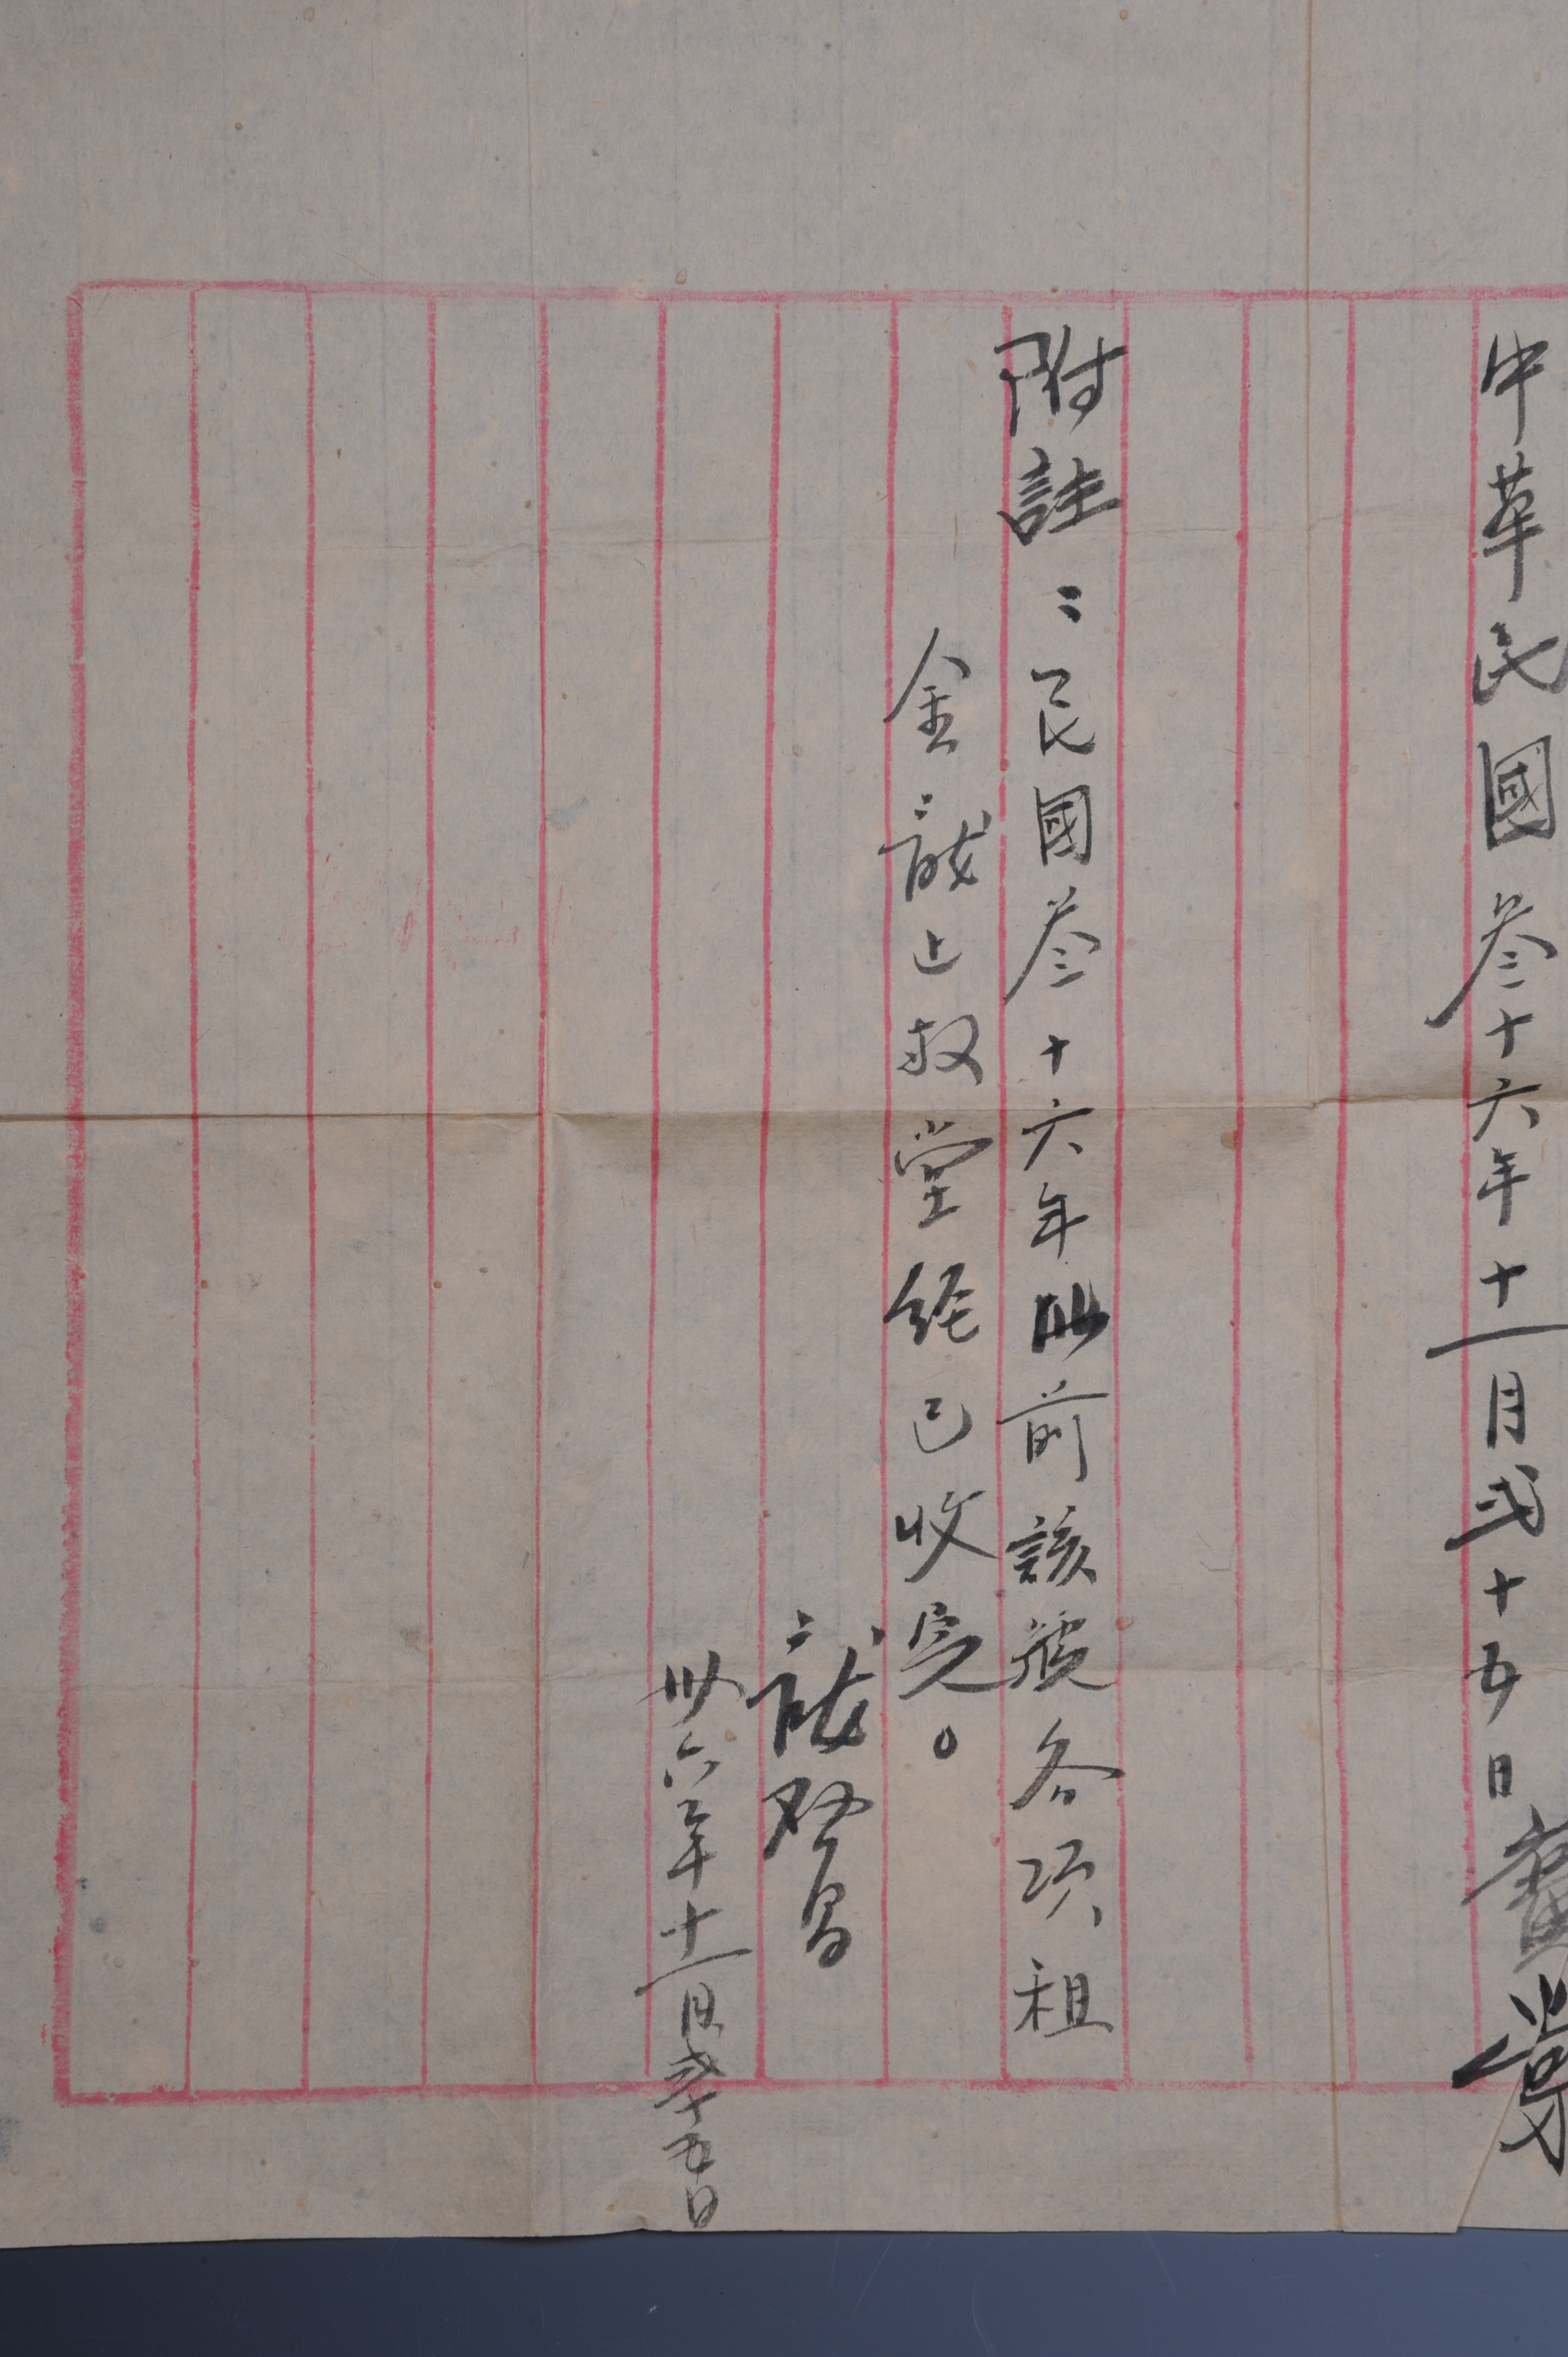 中華民國叁十六年十一月弍十五日
附註：民國叁十六年以前該號各項租
金龍上叔堂経已收完。
龍啓昌
卅六年十一月弍十五日